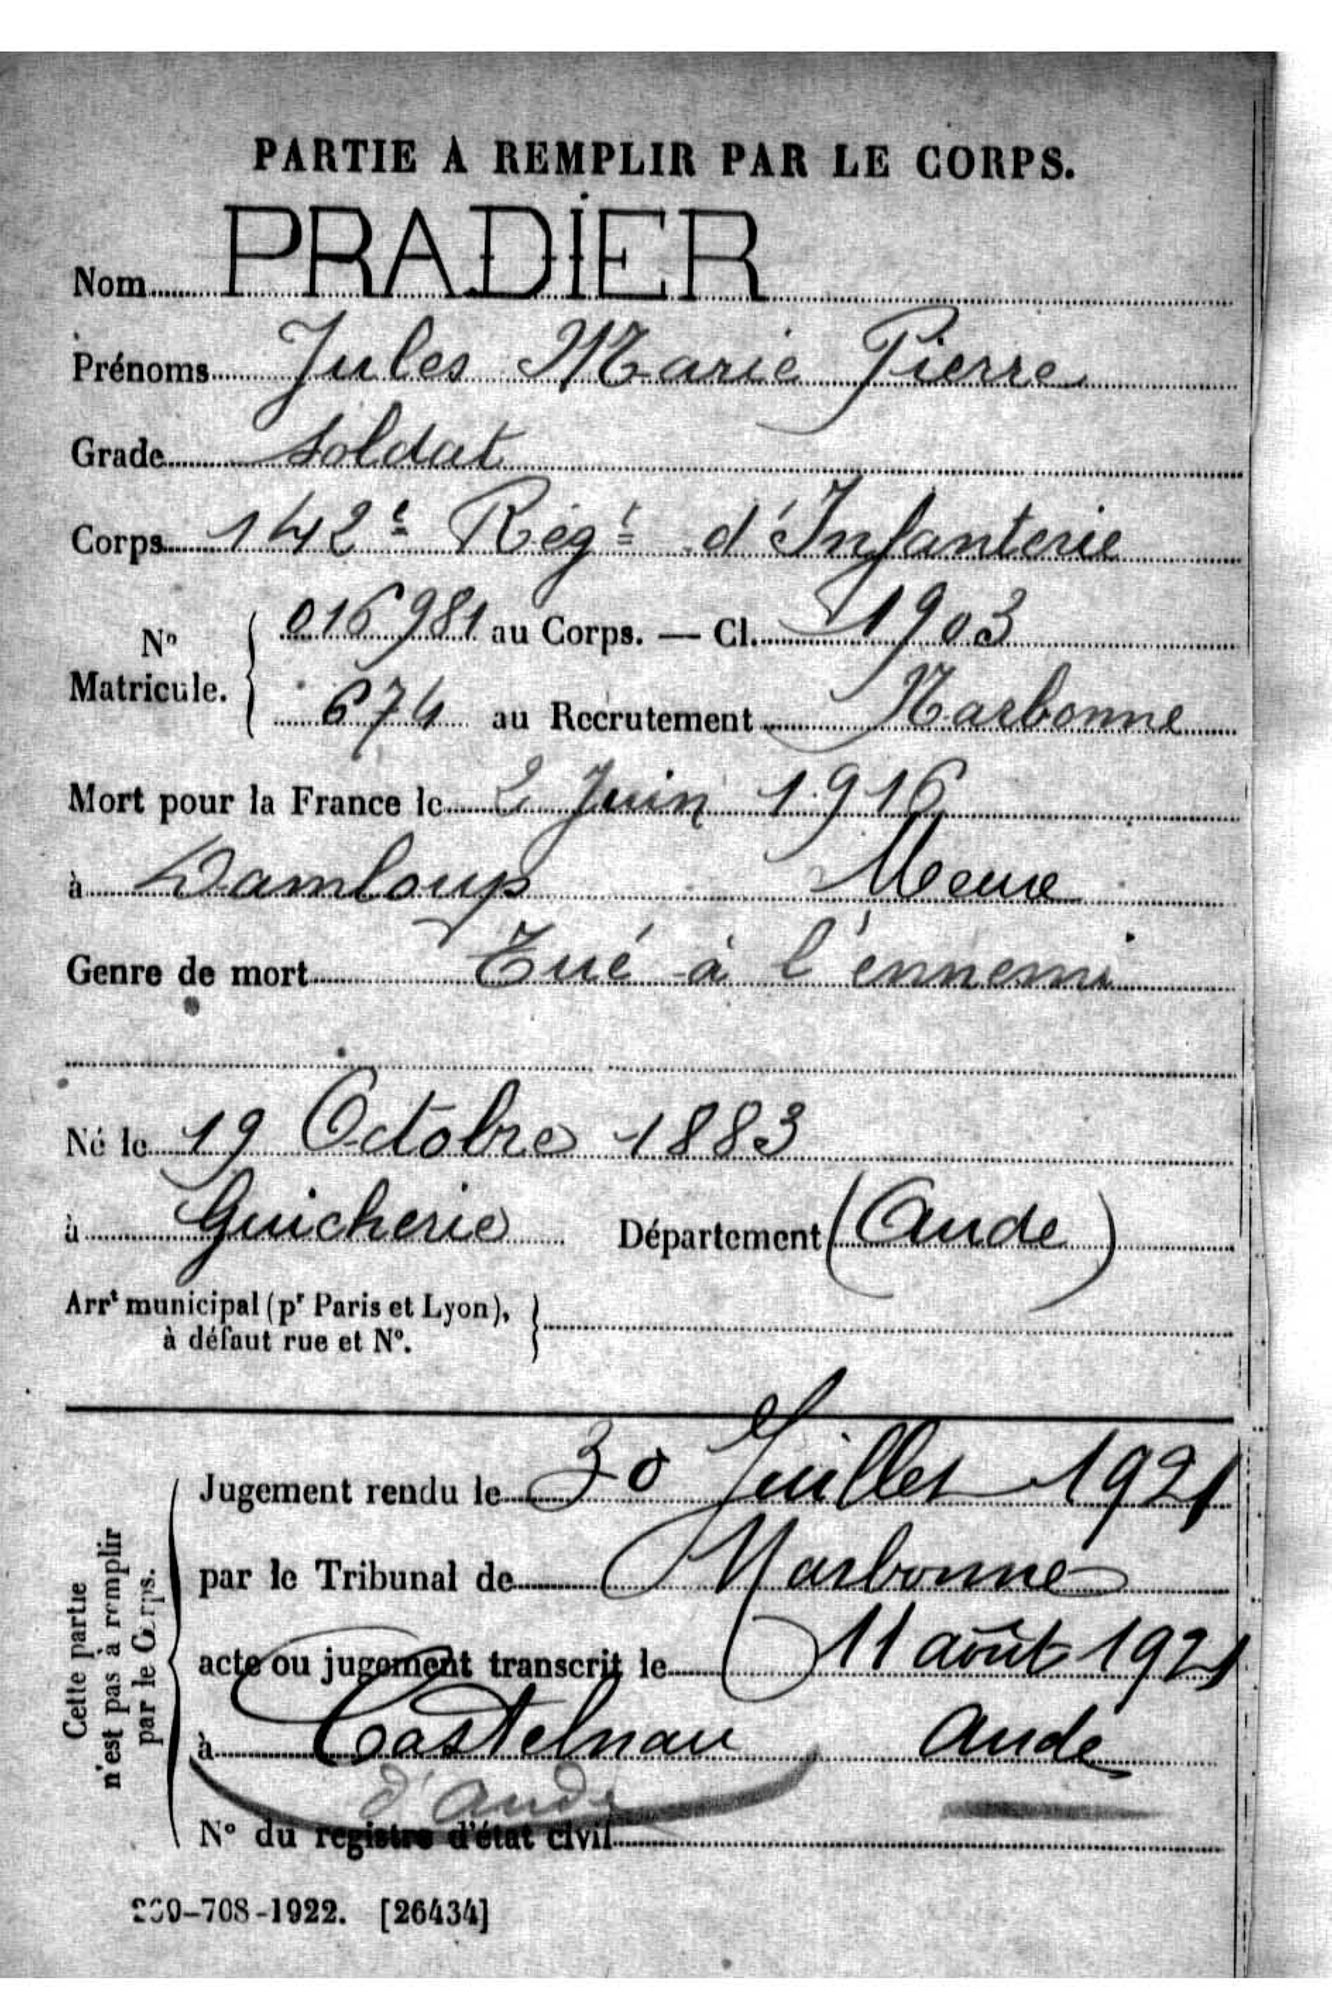 PARTIE A REMPLIR PAR LE CORPS.
Nom PRADIER
Prénoms Jules Marie Pierre
Grade soldat
Corps 142e Régt d'Infanterie
No Matricule. { 016981 au Corps. — Cl. 1903
674 au Recrutement Narbonne
Mort pour la France le 2 Juin 1916
à Damloup Meuse
Genre de mort Tué à l'ennemi
Né le 19 Octobre 1883
à Guicherie Département (Aude)
Arrt municipal (pr Paris et Lyon),
à défaut rue et No.
Cette partie
n'est pas à remplir
par le Corps.
Jugement rendu le 30 Juillet 1921
par le Tribunal de Narbonne
acte ou jugement transcrit le 11 août 1921
à Castelnau Aude
d'Aude
No du registre d'état civil
-708-1922. [26434]